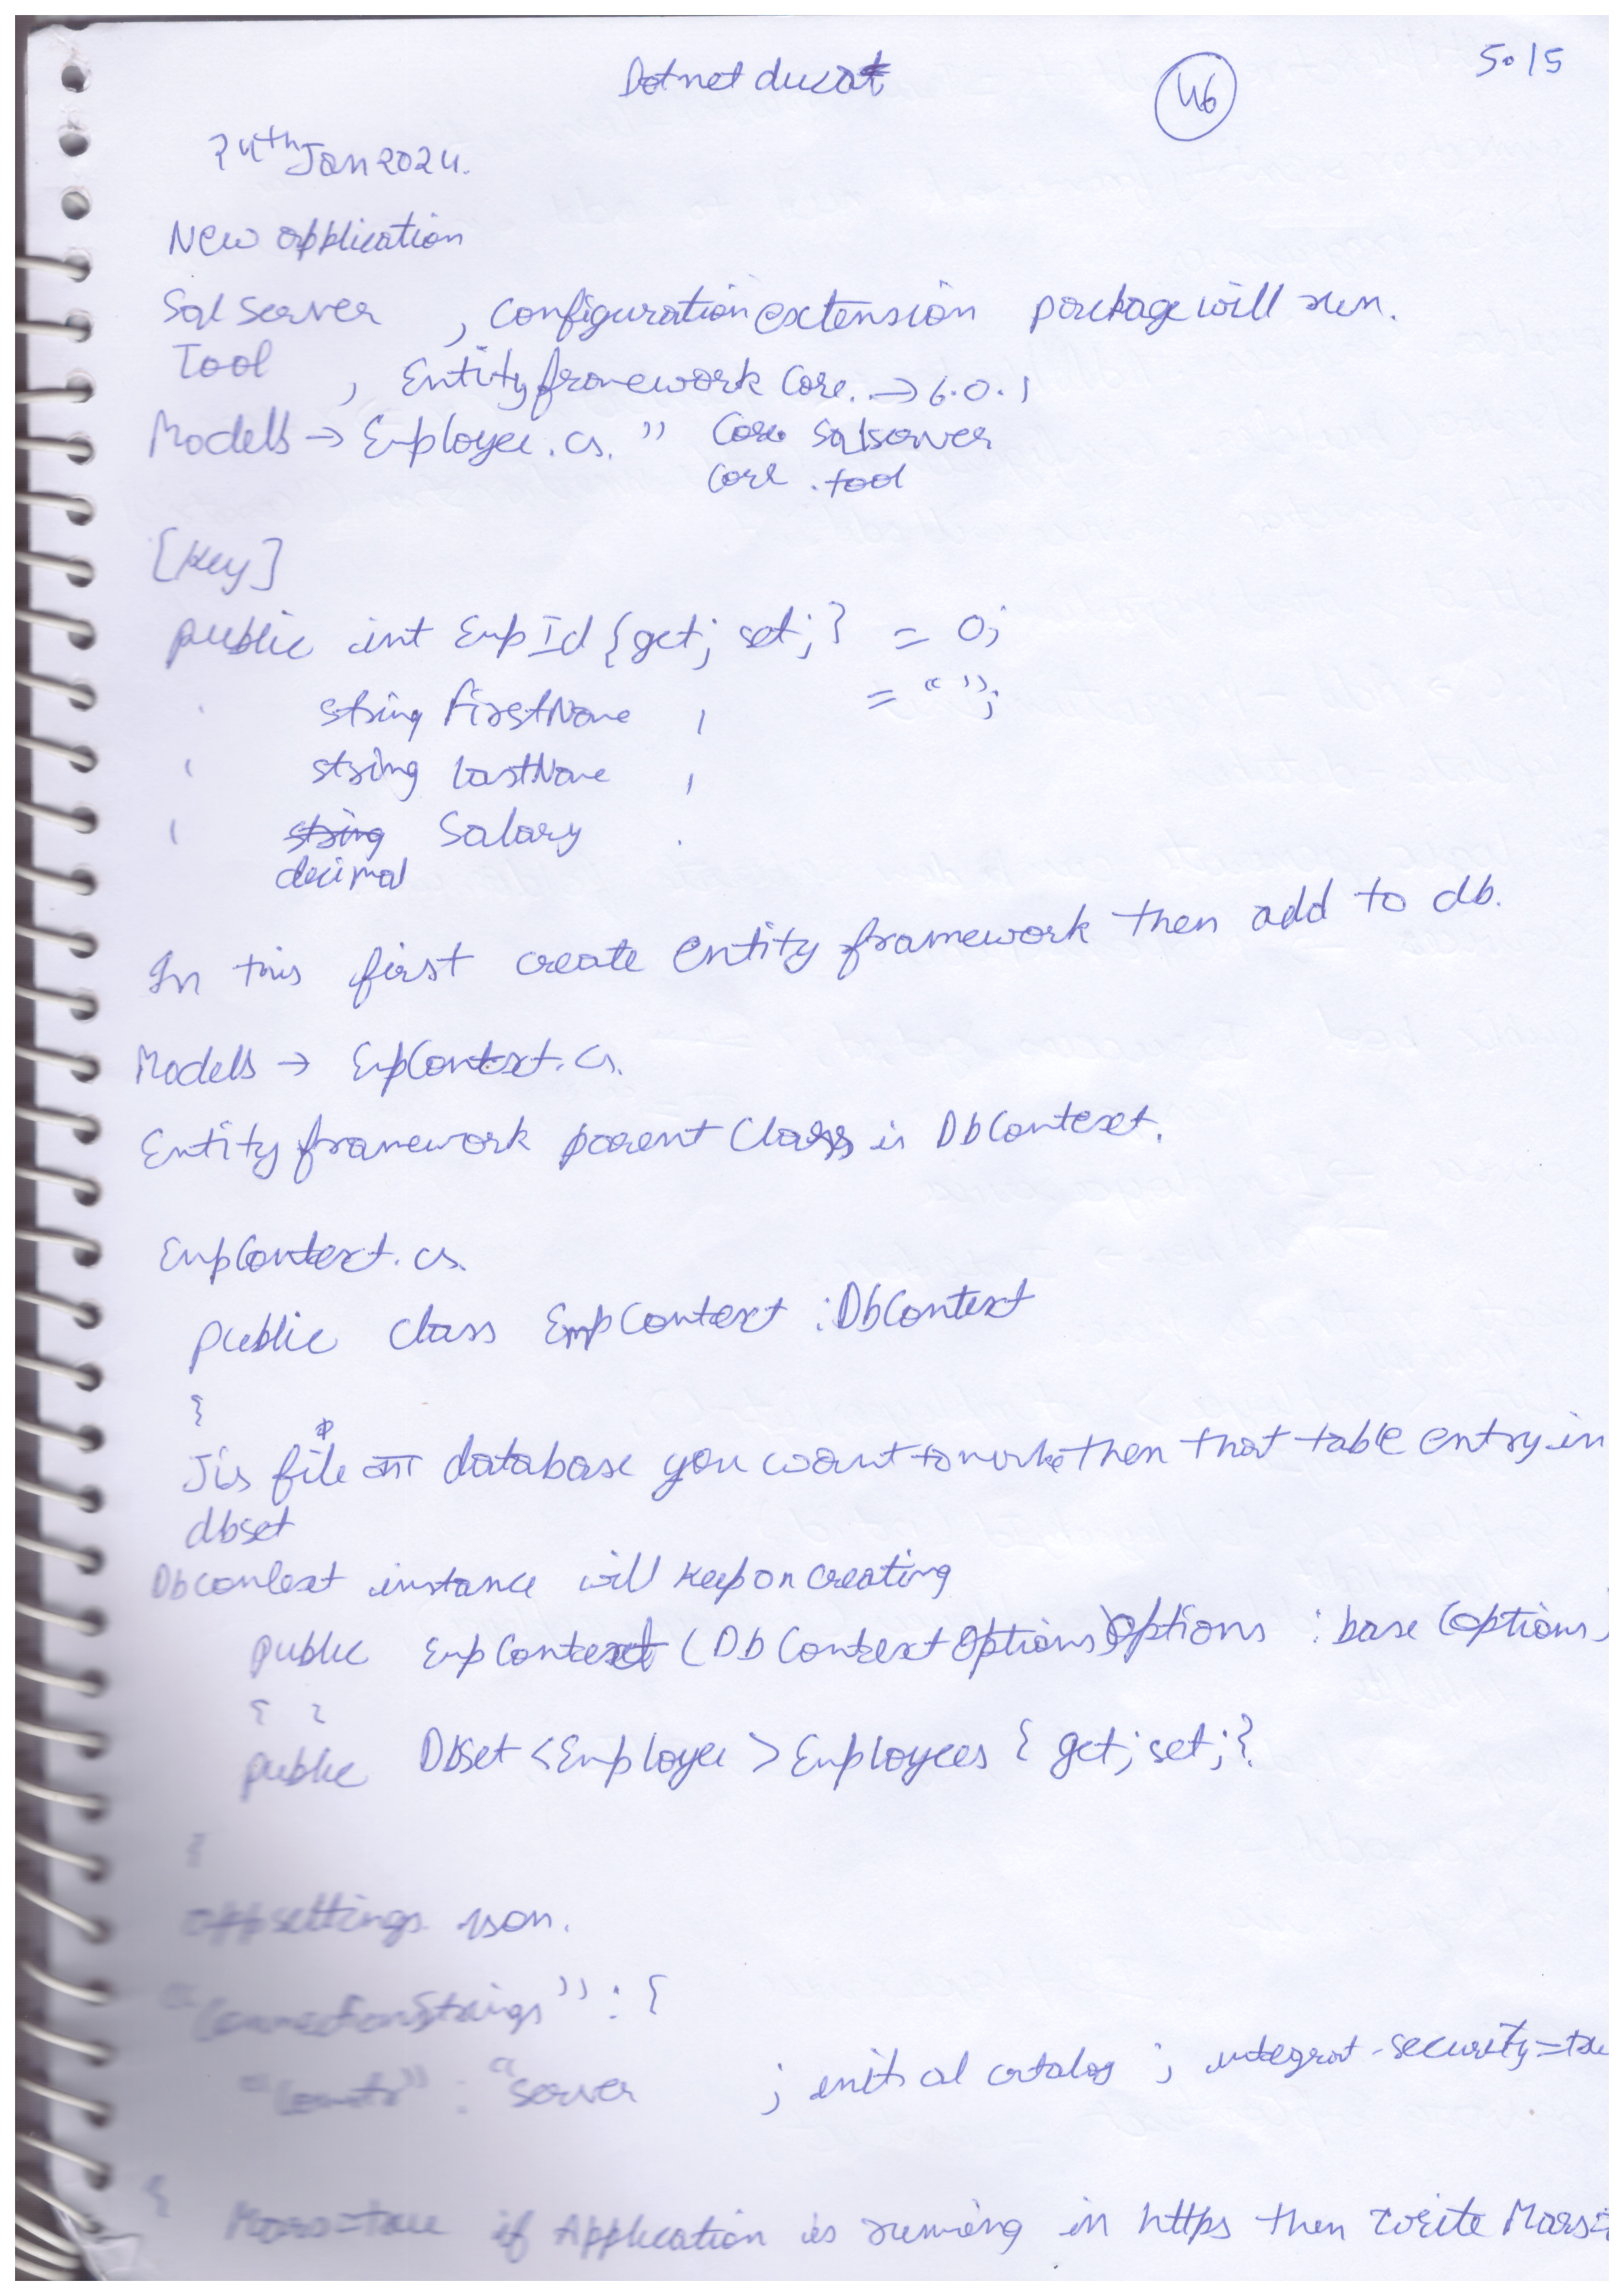 Dotnet ducat
46
50/5
24th Jan 2024.
New application
Sql Server , configuration extension package will run.
Tool , Entity framework Core. → 6.0.1
Modells → Employee.cs. " Core Sqlserver
Core .tool
[Key]
public int EmpId {get; set;} = 0;
string FirstName , = "";
string LastName ,
string Salary
decimal
In this first create entity framework then add to db.
Modells → EmpContext.cs.
Entity framework parent Class is DbContext.
EmpContext.cs.
public class EmpContext : DbContext
{
Jis file database you want to then that table entry in
dbset
Dbcontext instance will keep on creating
public EmpContext (DbContextOptions) options : base (options)
{ }
public Dbset <Employee> Employees { get; set; }
}
appsettings json.
"ConnectionStrings" : {
: "server ; initial catalog ; integrat-security=
} Mars=true if Application is running in https then write Mars=